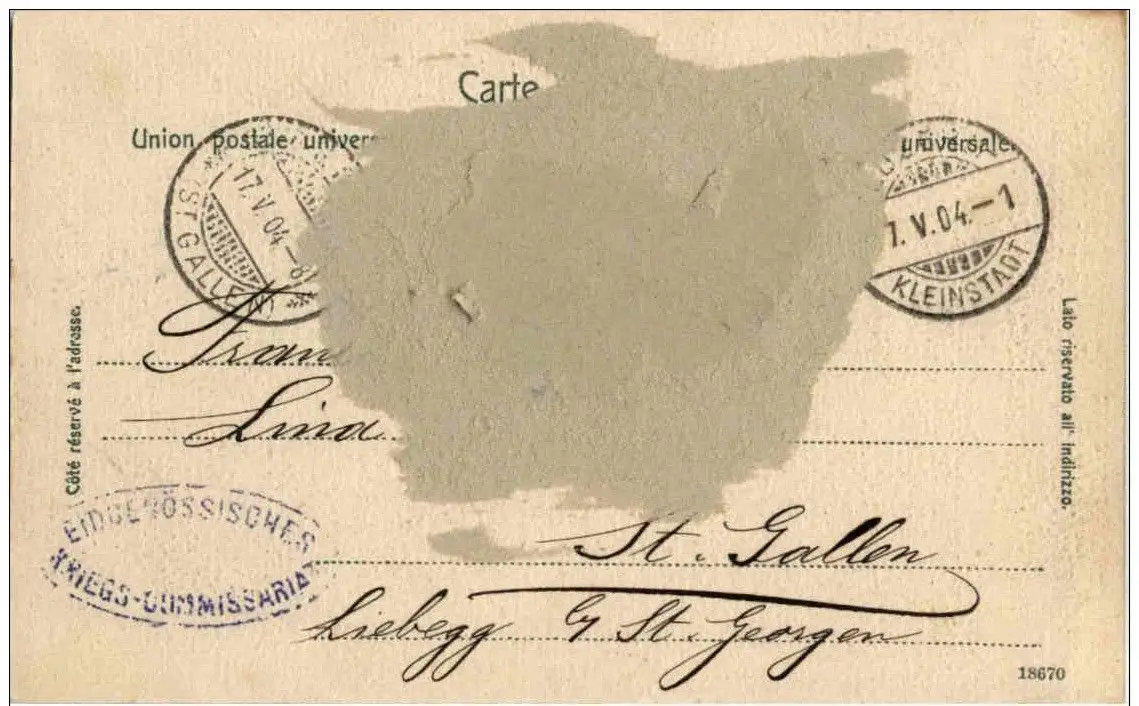 Carte
Union postale univers
universale.
ST. GALLEN
17.V.04.-8
7.V.04.-1
KLEINSTADT
Côté réservé à l'adresse.
Lato riservato all' indirizzo.
Lina
EIDGENÖSSISCHES
KRIEGS-COMMISSARIAT
St. Gallen
Liebegg b/ St. Georgen
18670